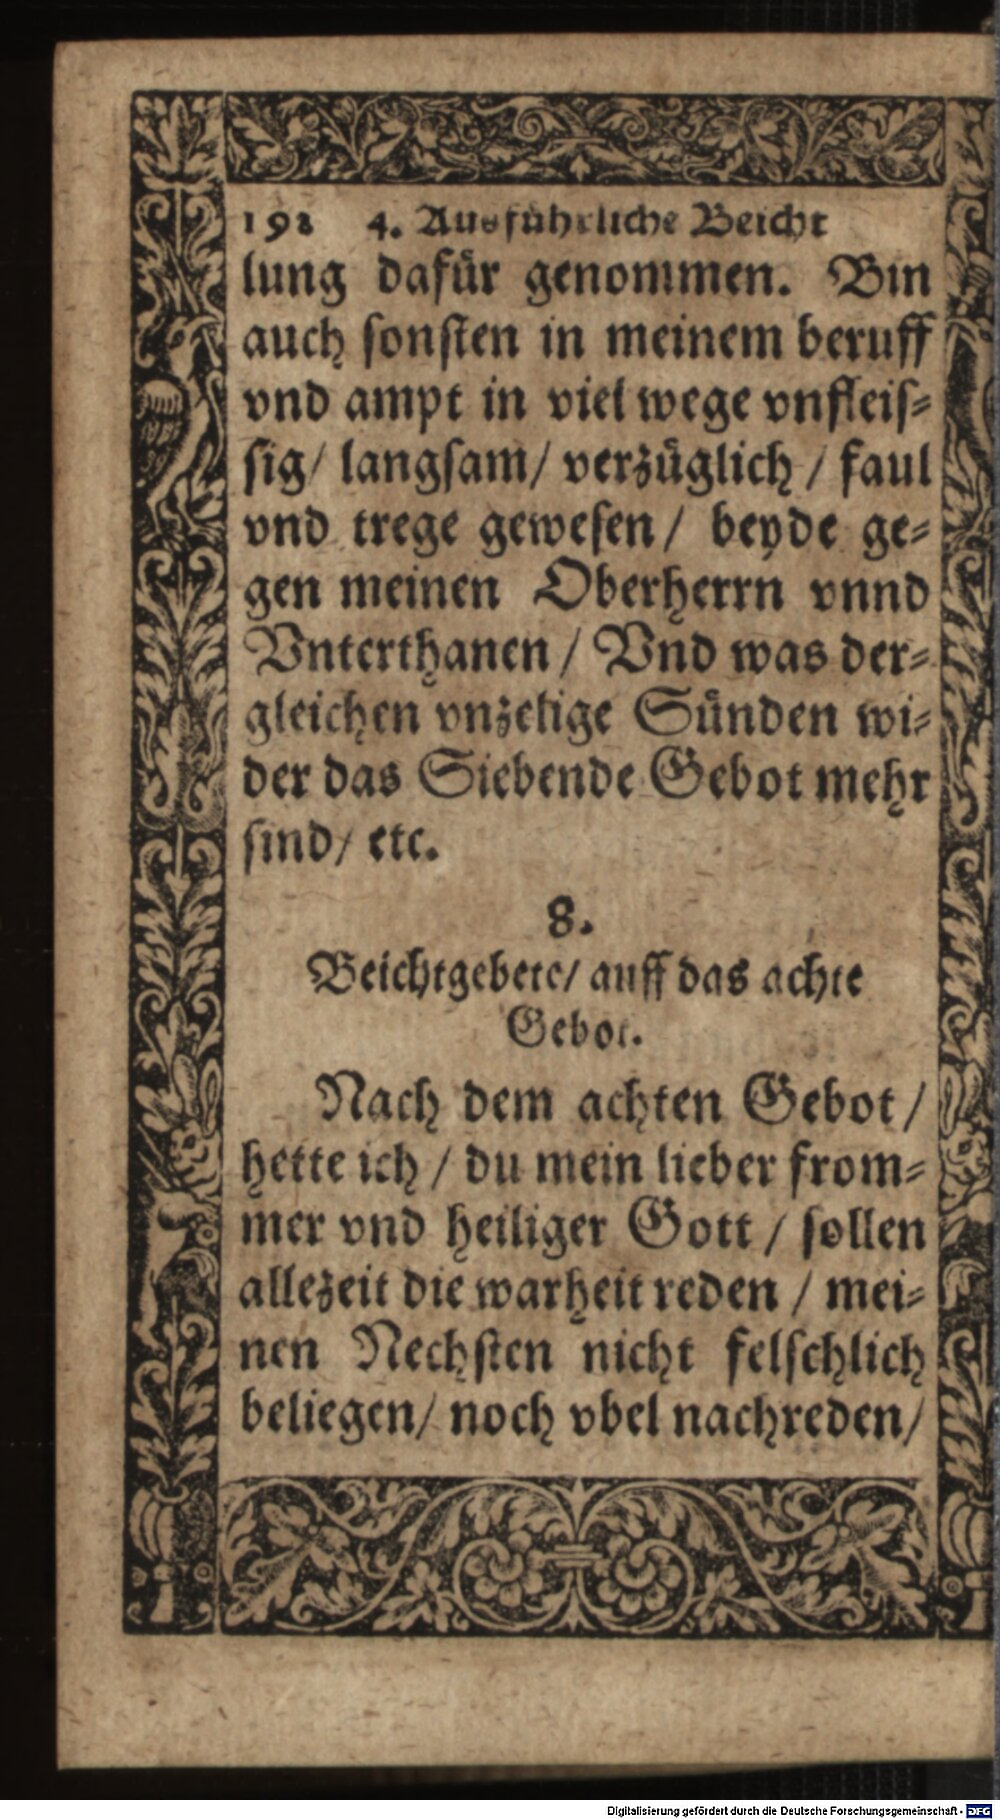 198 4. Ausführliche Beicht
lung dafür genommen. Bin
auch ſonſten in meinem beruff
vnd ampt in viel wege vnfleiſ⸗
ſig/ langſam/ verzüglich/ faul
vnd trege geweſen/ beyde ge⸗
gen meinen Oberherrn vnnd
Vnterthanen/ Vnd was der⸗
gleichen vnzelige Sünden wi⸗
der das Siebende Gebot mehr
ſind/ etc.
8.
Beichtgebete/ auff das achte
Gebot.
Nach dem achten Gebot/
hette ich/ du mein lieber from⸗
mer vnd heiliger Gott/ ſollen
allezeit die warheit reden/ mei⸗
nen Nechſten nicht felſchlich
beliegen/ noch vbel nachreden/
Digitalisierung gefördert durch die Deutsche Forschungsgemeinschaft - DFG